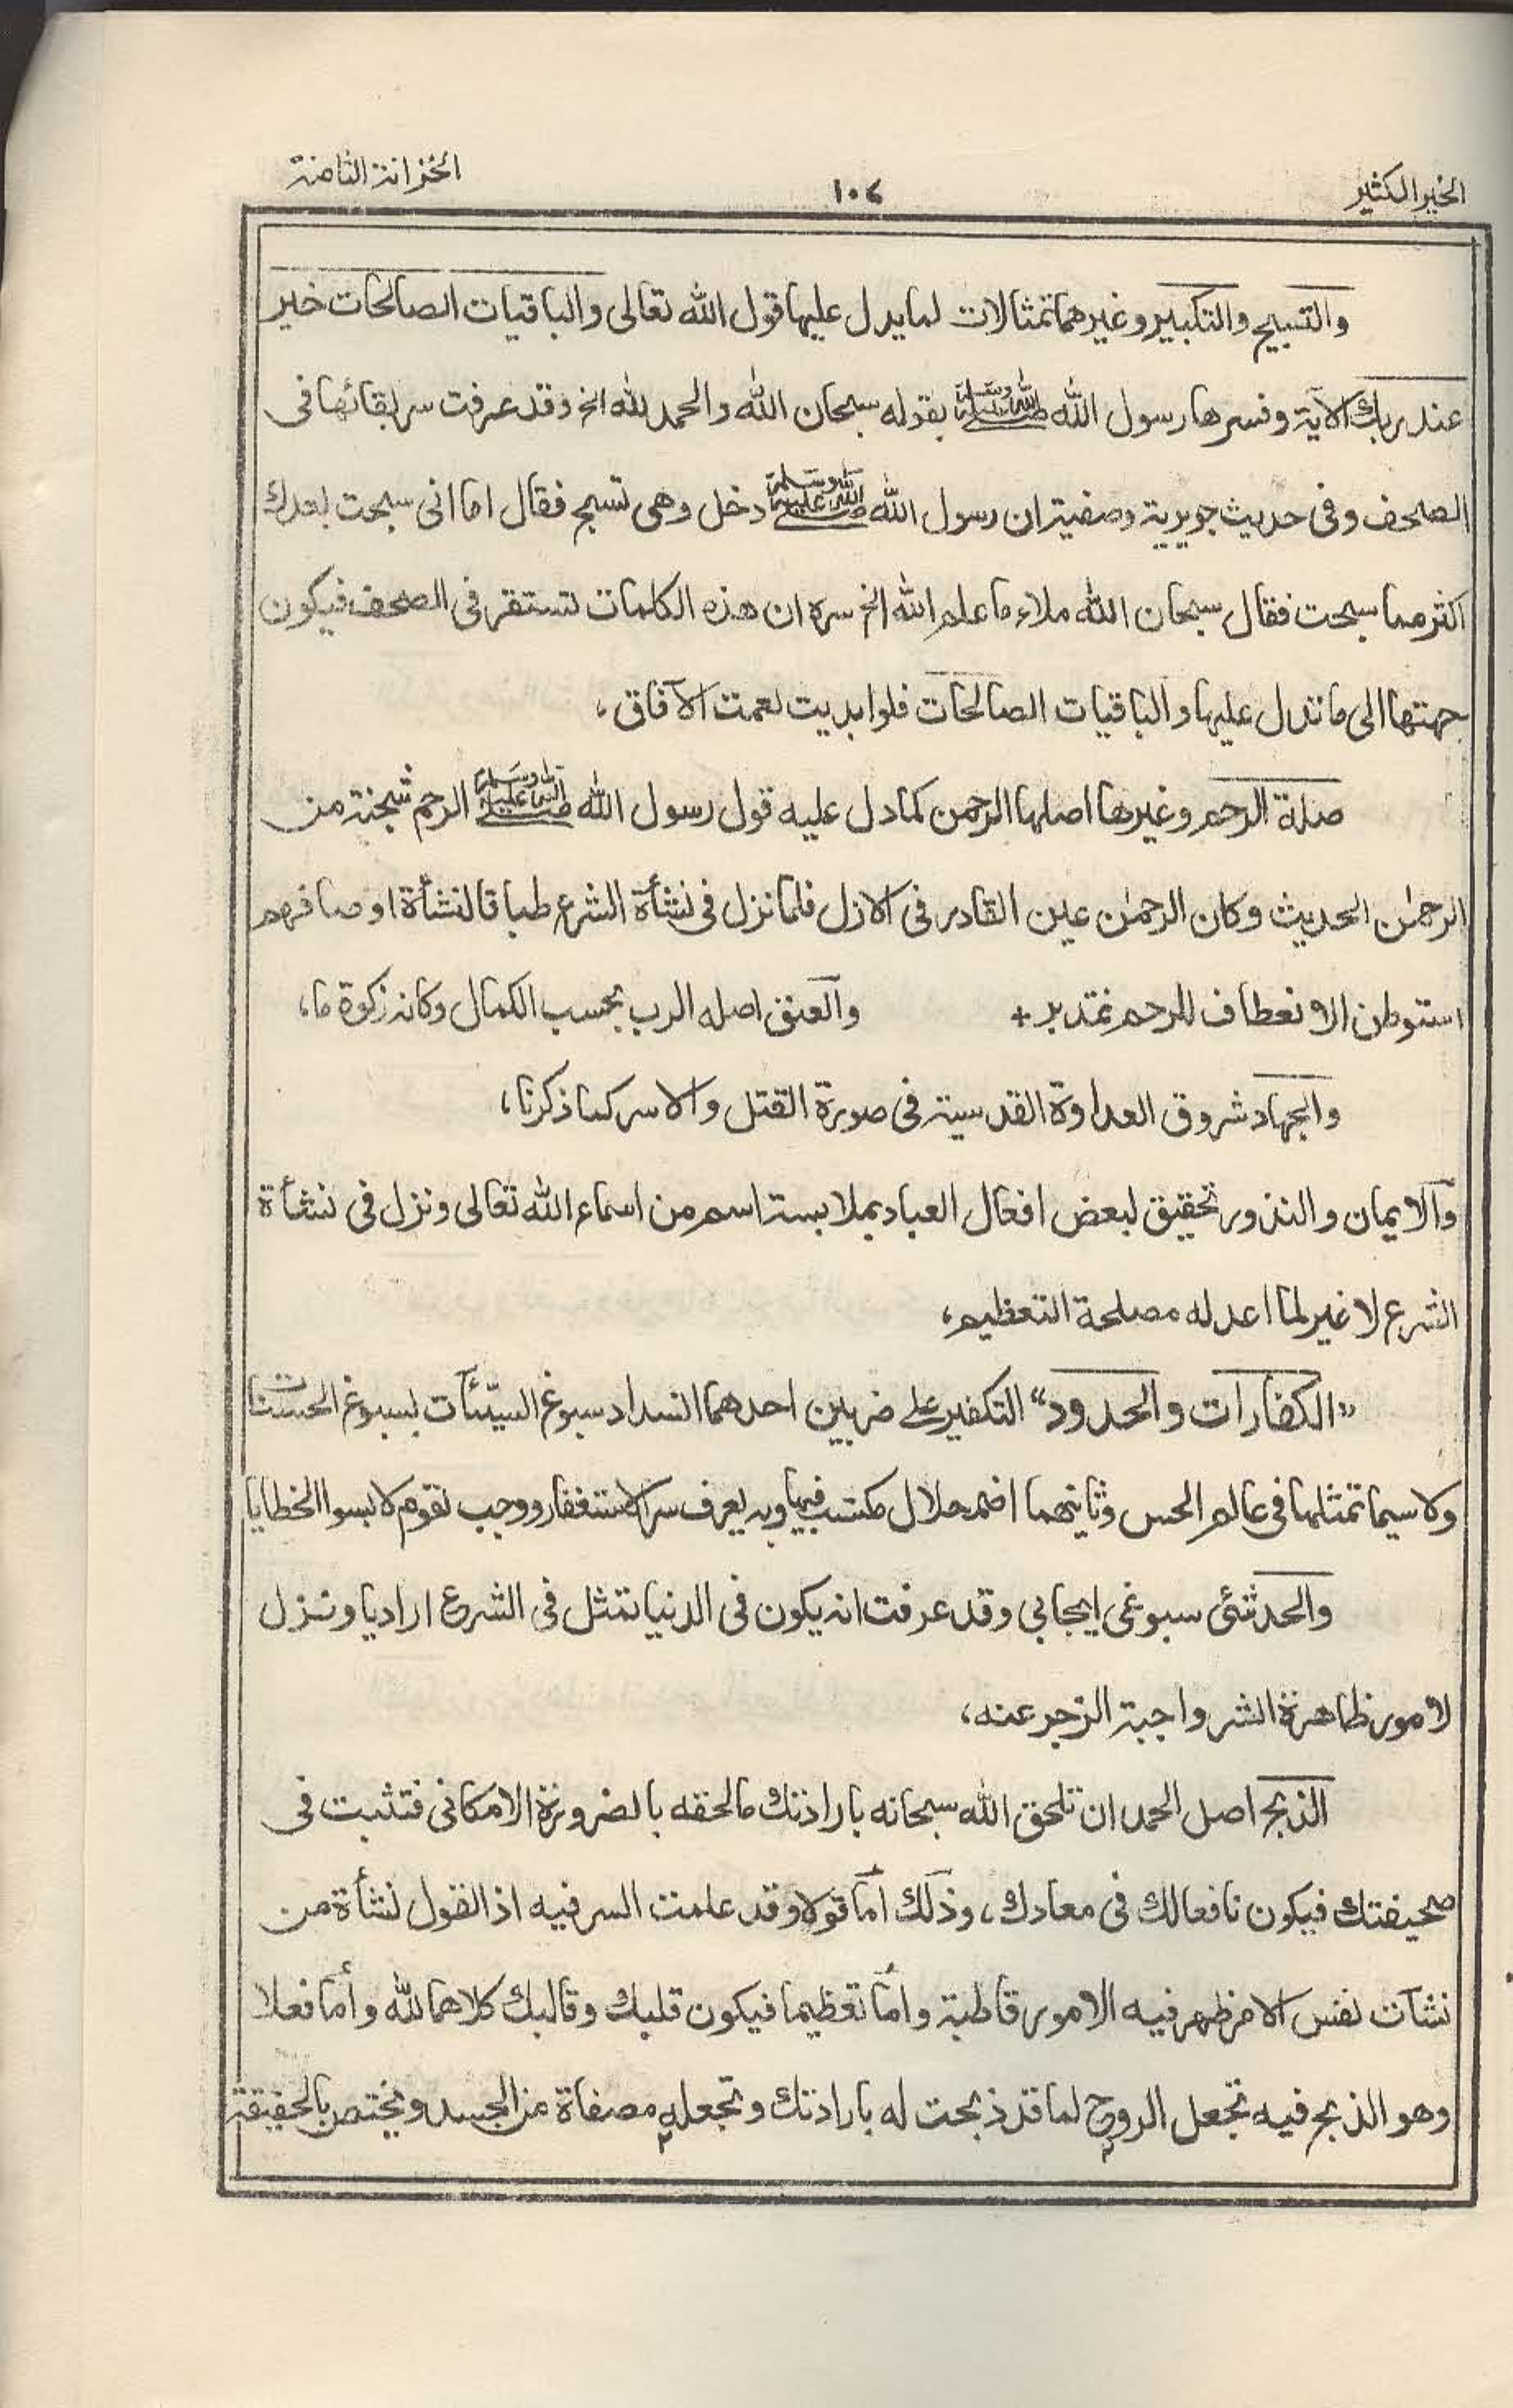 الخير الكثير
١٠٤
الخزانة الثامنة
والتسبيح والتكبير وغيرهما تمثالات لما يدل عليها قول الله تعالى والباقيات الصالحات خير
عند ربك الآية وفسرها رسول الله صلى الله عليه وسلم بقوله سبحان الله والحمد لله الخ وقد عرفت سر بقائها فى
الصحف وفى حديث جويرية وصفية ان رسول الله صلى الله عليه وسلم دخل وهى تسبح فقال اما انى سبحت بعدك
اكثر مما سبحت فقال سبحان الله ملاء ما علم الله الخ سره ان هذه الكلمات تستقر فى الصحف فيكون
جهتها الى ما تدل عليها والباقيات الصالحات فلو ابديت لعمت الآفاق،
صلة الرحم وغيرها اصلها الرحمن كما دل عليه قول رسول الله صلى الله عليه وسلم الرحم شجنة من
الرحمٰن الحديث وكان الرحمٰن عين القادر فى الازل فلما نزل فى نشأة الشرع طباقا لنشأة اوصافهم
استوطن الانعطاف للرحم فتدبر + والعتق اصله الرب بحسب الكمال وكانه زكوة ما،
والجهاد شروق العداوة القدسية فى صورة القتل والاسر كما ذكرنا،
والايمان والنذور تحقيق لبعض افعال العباد بملابسة اسم من اسماء الله تعالى ونزل فى نشأة
الشرع لا غير لما اعد له مصلحة التعظيم،
"الكفارات والحدود" التكفير على ضربين احدهما انسداد سبوغ السيّئآت بسبوغ الحسنات
ولا سيما تمثلها فى عالم الحس وثانيهما اضمحلال مكتسب فيها وبه يعرف سر الاستغفار ووجب لقوم لابسوا الخطايا
والحد شئ سبوغى ايجابى وقد عرفت انه يكون فى الدنيا تمثل فى الشرع اراديا ونزل
لامور ظاهرة الشر واجبة الزجر عنه،
الذبح اصل الحمد ان تلحق الله سبحانه بارادتك ما لحقه بالضرورة الامكانى فتثبت فى
صحيفتك فيكون نافعا لك فى معادك، وذلك أما قولا وقد علمت السر فيه اذ القول نشأة من
نشآت نفس الامر ظهر فيه الامور قاطبة وأما تعظيما فيكون قلبك وقالبك كلاهما لله وأما فعلا
وهو الذبح فيه تجعل الروح لما قد ذبحت له بارادتك وتجعله مصفاة من الجسد ويختص بالحقيقة